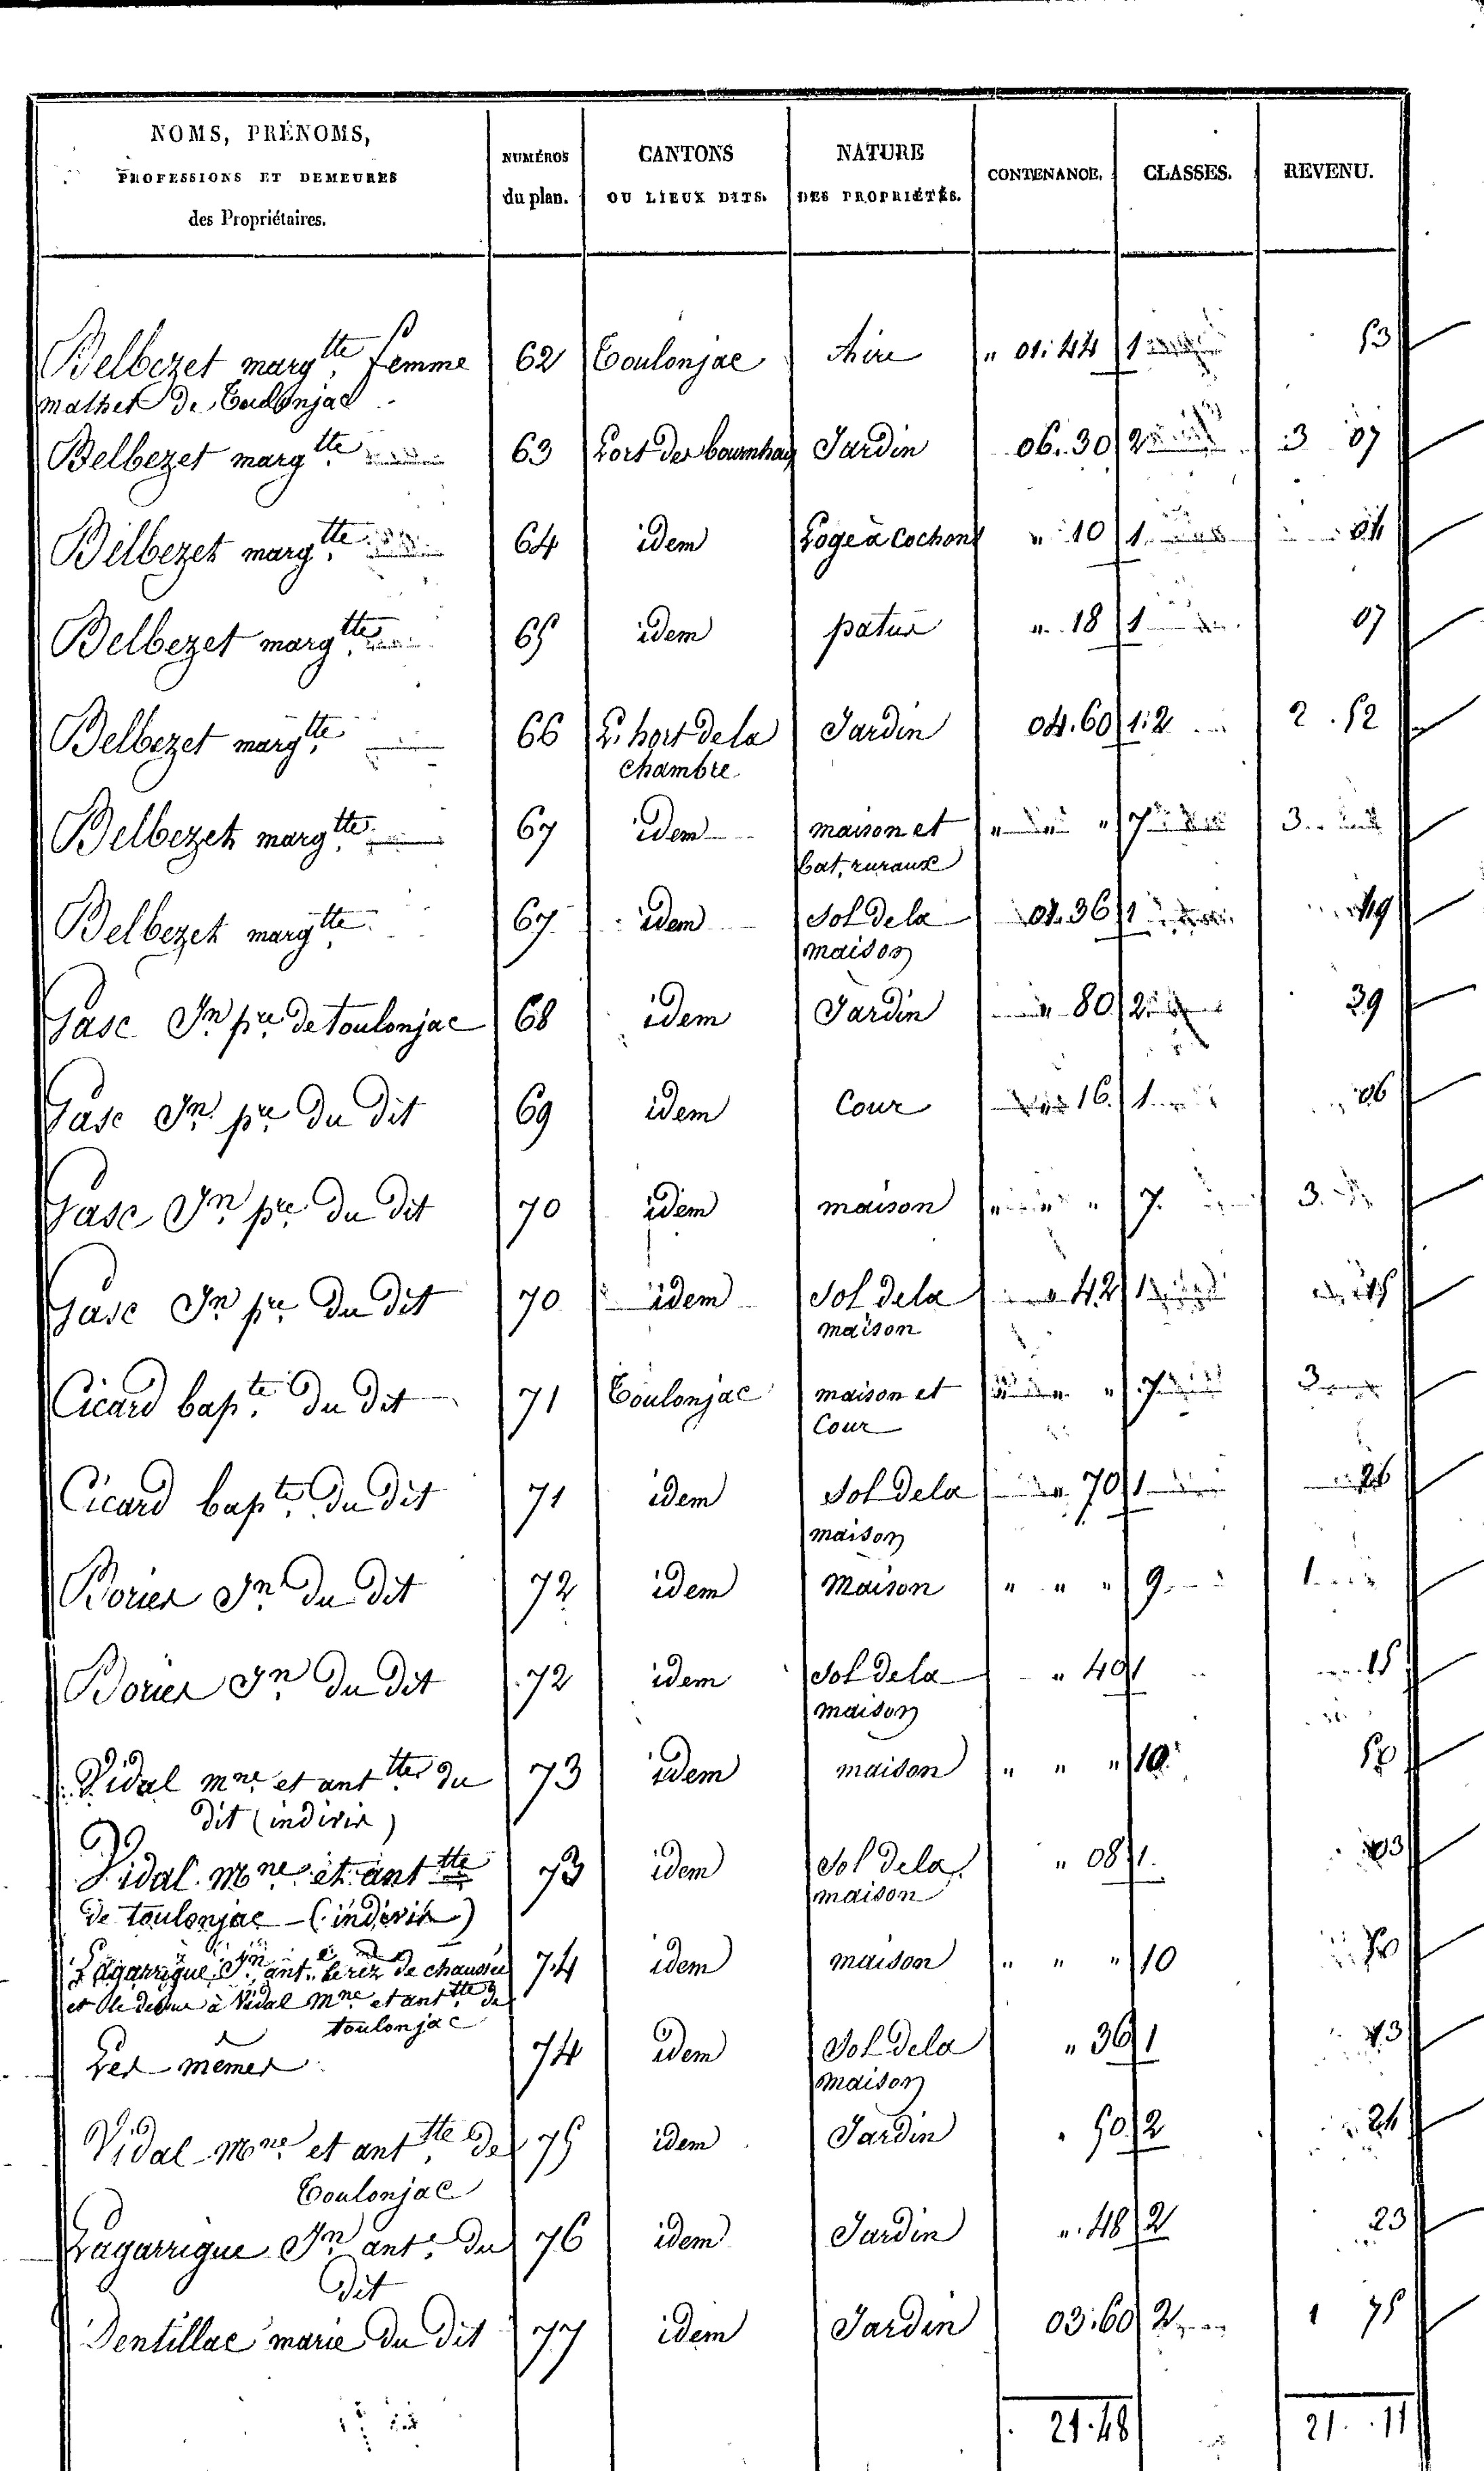 NOMS, PRÉNOMS, PROFESSIONS ET DEMEURES des Propriétaires. NUMÉROS du plan. CANTONS OU LIEUX DITS. NATURE DES PROPRIÉTÉS. CONTENANCE. CLASSES. REVENU.
Belbezet marg.tte femme 62 Toulonjac Aire " 01.44 1 53
mathet de Toulonjac
Belbezet marg.tte 63 Jardin 06.30 2 3 07
Belbezet marg.tte 64 idem Loge à Cochons " 10 1 04
Belbezet marg.tte 65 idem patus " 18 1 07
Belbezet marg.tte 66 L'hort de la Jardin 04.60 1.2 2.52
chambre
Belbezet marg.tte 67 idem maison et " " " 7 3
bat. ruraux
Belbezet marg.tte 67 idem Sol de la 01.36 1 49
maison
Gasc Jn pre de toulonjac 68 idem Jardin " 80 2 39
Gasc Jn pre du dit 69 idem Cour 16 1 06
Gasc Jn pre du dit 70 idem maison " " " 7 3
Gasc Jn pre du dit 70 idem Sol de la " 42 1 15
maison
Cicard bap.te du dit 71 Toulonjac maison et " " " 7 3
Cour
Cicard bap.te du dit 71 idem Sol de la " 70 1 26
maison
Bories Jn du dit 72 idem Maison " " " 9 1
Bories Jn du dit 72 idem Sol de la " 40 1 15
maison
Vidal mne et ant.tte du 73 idem maison " " " 10 50
dit (indivis)
Vidal Mne et ant.tte 73 idem Sol de la " 08 1 03
maison
de toulonjac (indivis)
Lagarrigue Jn ant.e le rez de chaussée 74 idem maison " " " 10 50
et le dessus à Vidal Mne et ant.tte de
toulonjac
Les mêmes 74 idem Sol de la " 36 1 13
maison
Vidal Mne et ant.tte de 75 idem Jardin " 50 2 24
Toulonjac
Lagarrigue Jn ant.e du 76 idem Jardin " 48 2 23
dit
Dentillac marie du dit 77 idem Jardin 03.60 2 1 75
21.48 21.11